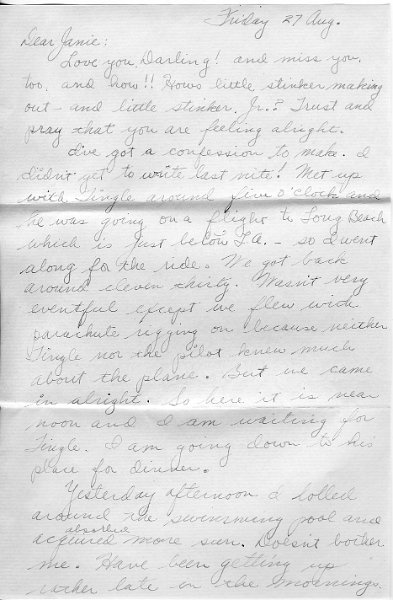 Friday 27 Aug.
Dear Janie:
Love you Darling! and miss you,
too, and how!! Hows little stinker making
out - and little stinker, Jr.? Trust and
pray that you are feeling alright.
I've got a confession to make. I
didn't get to write last nite! Met up
with Tingle around five o'clock and
he was going on a flight to Long Beach
which is just below L.A. - so I went
along for the ride. We got back
around eleven thirty. Wasn't very
eventful except we flew with
parachute rigging on because neither
Tingle nor the pilot knew much
about the plane. But we came
in alright. So here it is near
noon and I am waiting for
Tingle. I am going down to his
place for dinner.
Yesterday afternoon I lolled
around the swimming pool and
absorbed
acquired more sun. Doesn't bother
me. Have been getting up
rather late in the mornings.